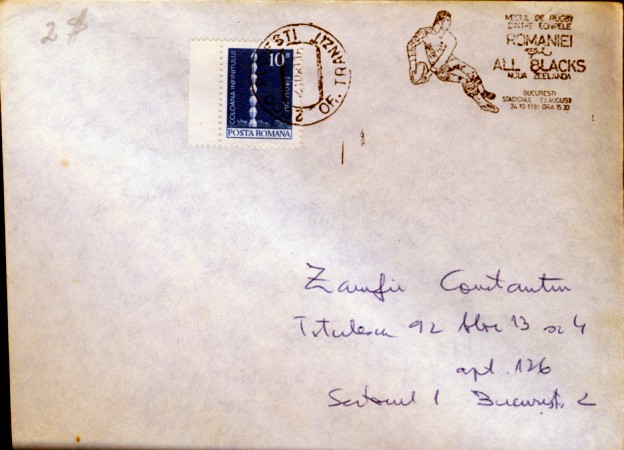 2 $
MECIUL DE RUGBY
DINTRE ECHIPELE
ROMANIEI
si
ALL BLACKS
NOUA ZEELANDA
BUCURESTI
STADIONUL 23 AUGUST
24.10.1981 ORA 15.30
OF. TRANZIT
10 B
COLOANA INFINITULUI
TIRGU JIU
POSTA ROMANA
Zamfir Constantin
Titulescu 92 bloc 13 sc 4
apt. 126
Sectorul 1 București 2